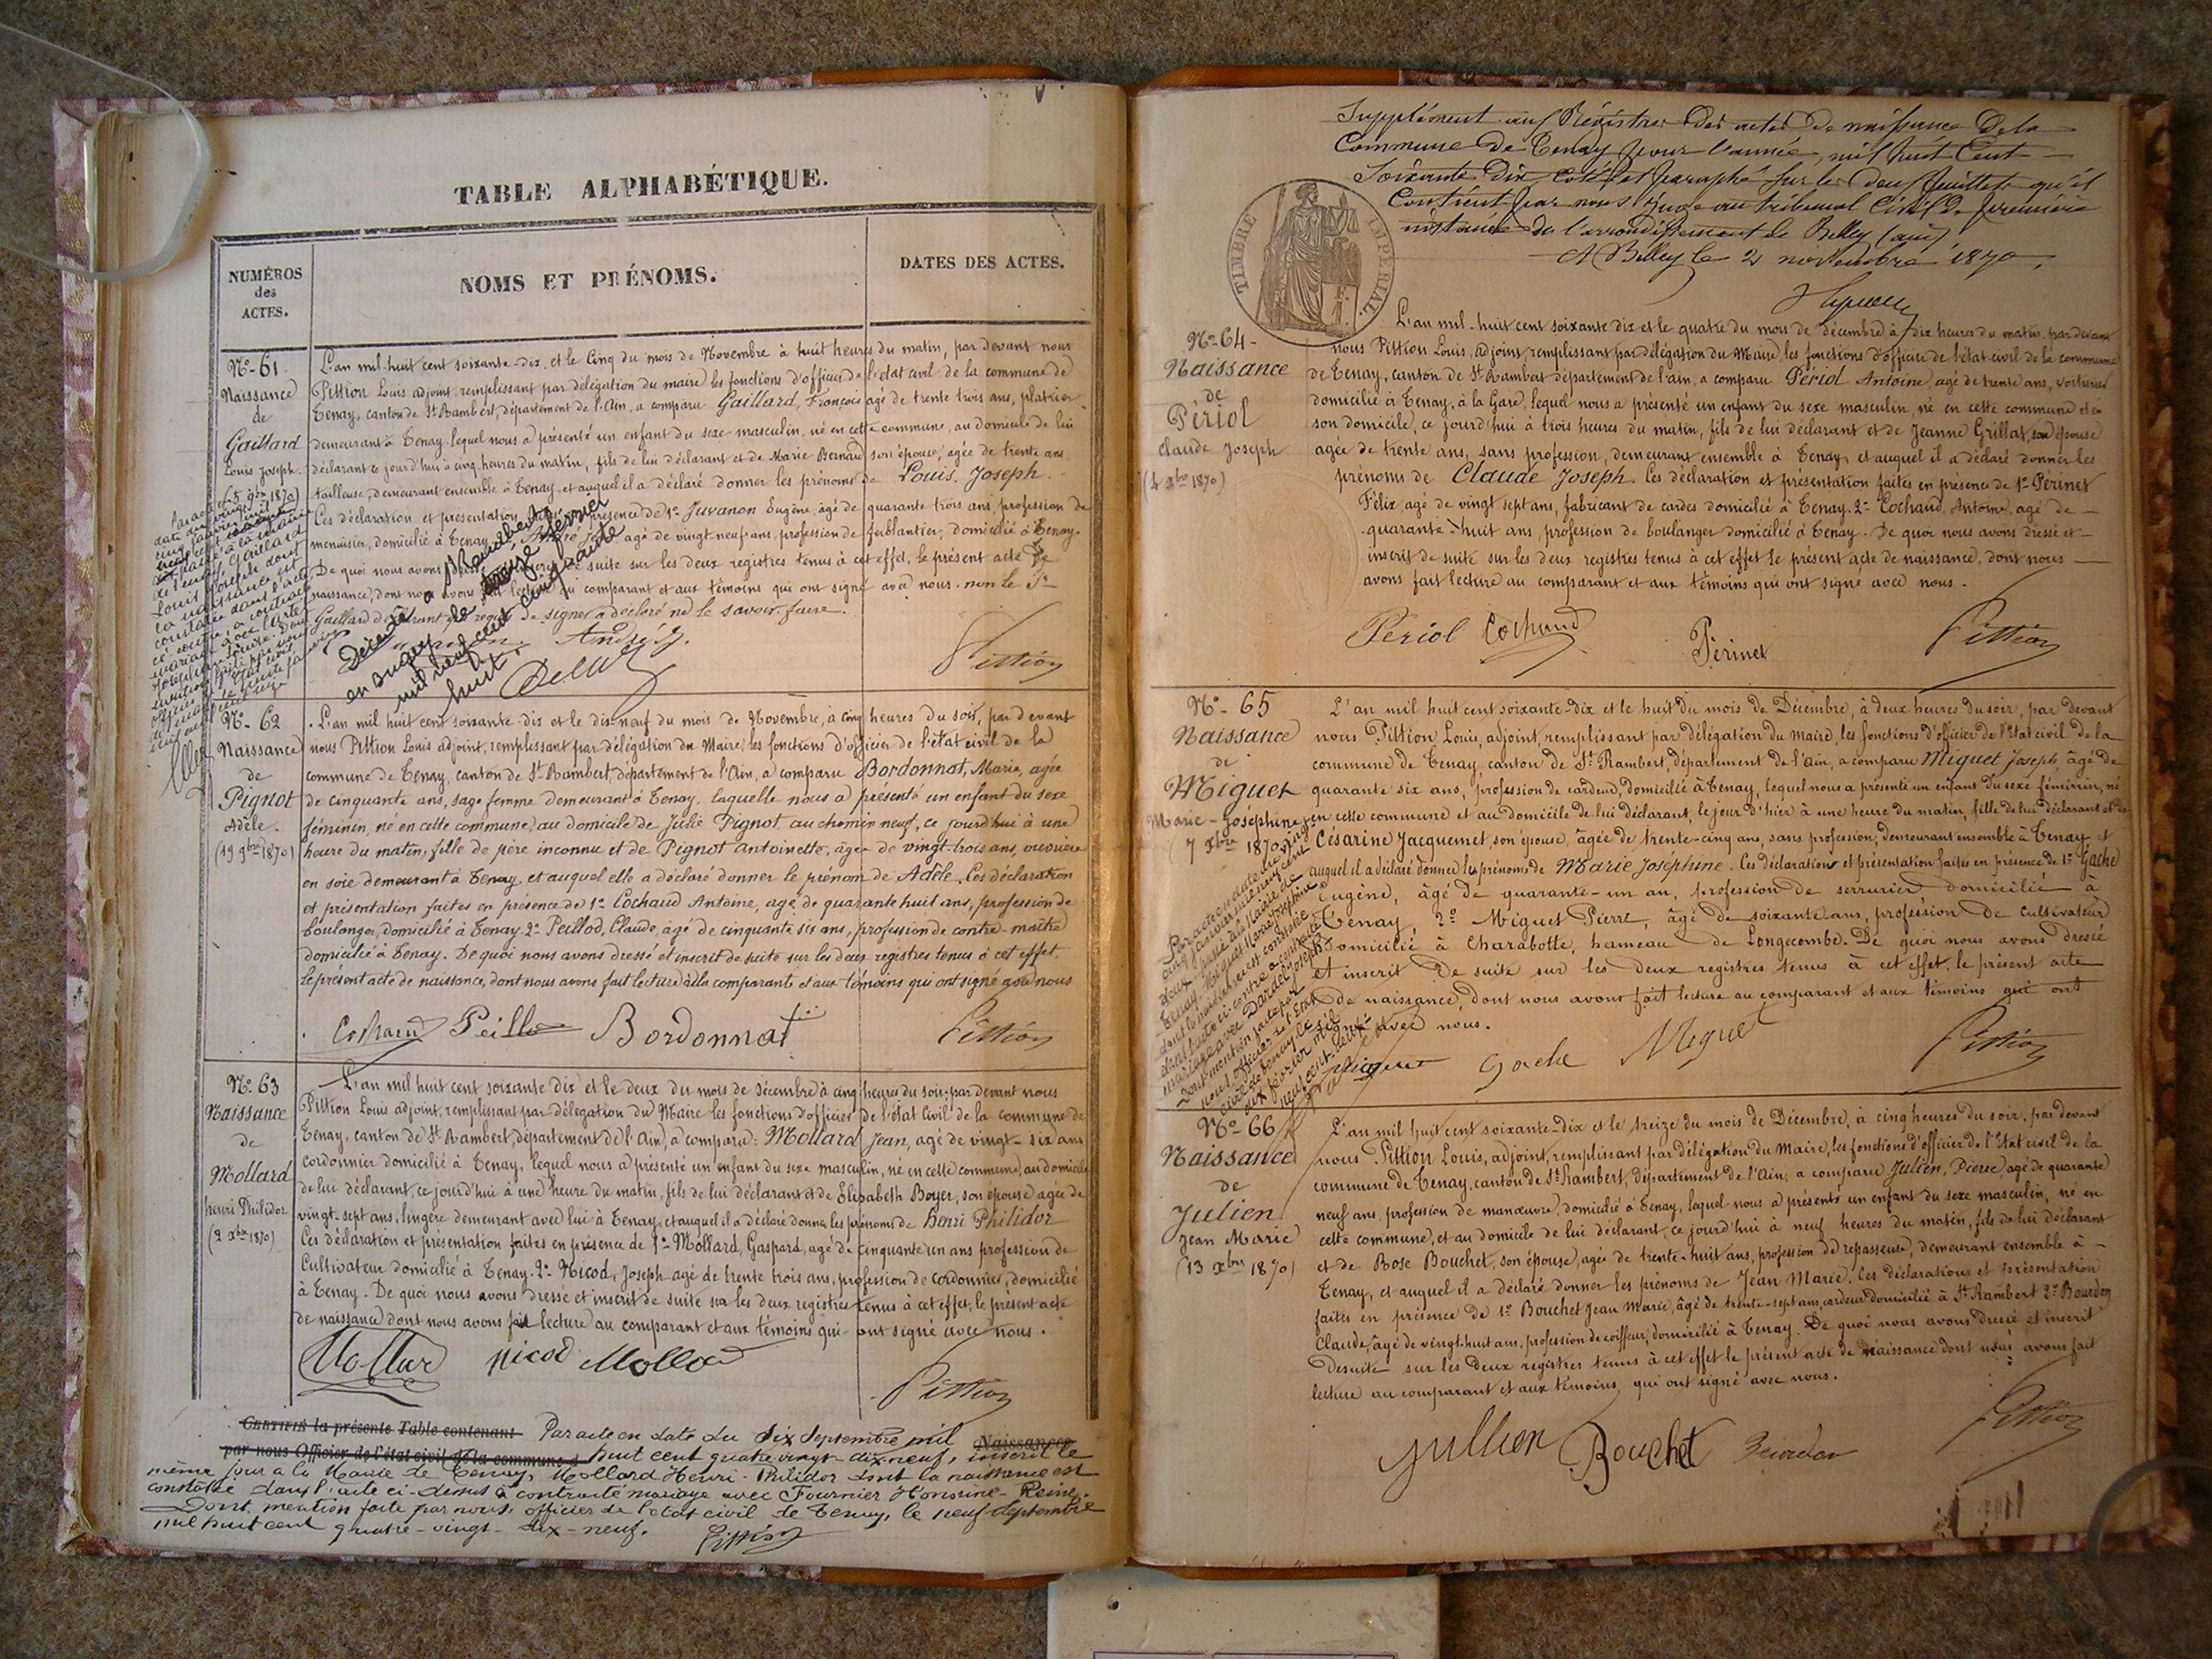 TABLE ALPHABÉTIQUE.
NUMÉROS
des
ACTES.
NOMS ET PRÉNOMS.
DATES DES ACTES.
N°-61.
Naissance
de
Gaillard
Louis Joseph.
(5 9bre 1870)
L'an mil-huit cent soixante-dix, et le cinq du mois de Novembre à huit heures du matin, par devant nous
Pittion Louis adjoint, remplissant par délégation du maire les fonctions d'officier de l'état civil de la commune de
Tenay, canton de St Rambert, département de l'Ain, a comparu Gaillard, François agé de trente trois ans, platrier
demeurant à Tenay lequel nous a présenté un enfant du sexe masculin, né en cette commune, au domicile de lui
déclarant ce jourd'hui à cinq heures du matin, fils de lui déclarant et de Marie Bernard son épouse, agée de trente ans
tailleuse, demeurant ensemble à Tenay, et auquel il a déclaré donner les prénoms de Louis, Joseph.
Ces déclaration et présentation présence de 1° Juvanon Eugène, agé de quarante trois ans, profession de
menuisier, domicilié à Tenay agé de vingt neuf ans, profession de ferblantier, domicilié à Tenay.
De quoi nous avons suite sur les deux registres tenus à cet effet, le présent acte de
naissance, dont nous avons lecture au comparant et aux témoins qui ont signé avec nous. non le Sr
Gaillard déclarant requis de signer a déclaré ne le savoir faire.
Décédé à
en Bugey le treize février
mil neuf cent cinquante
huit.
André J.
Pittion
N°- 62
Naissance
de
Pignot
Adèle.
(19 9bre 1870)
L'an mil huit cent soixante-dix et le dix neuf du mois de Novembre, à cinq heures du soir, par devant
nous Pittion Louis adjoint, remplissant par délégation du Maire, les fonctions d'officier de l'état civil de la
commune de Tenay, canton de St Rambert, département de l'Ain, a comparu Bordonnat, Marie, agée
de cinquante ans, sage femme demeurant à Tenay, laquelle nous a présenté un enfant du sexe
féminin, né en cette commune, au domicile de Julie Pignot au chemin neuf, ce jourd'hui à une
heure du matin, fille de père inconnu et de Pignot Antoinette, agée de vingt-trois ans, ouvrière
en soie demeurant à Tenay, et auquel elle a déclaré donner le prénom de Adèle. Ces déclaration
et présentation faites en présence de 1° Cochaud Antoine, agé de quarante huit ans, profession de
boulanger, domicilié à Tenay 2° Peillod, Claude, agé de cinquante six ans, profession de contre-maître
domicilié à Tenay. De quoi nous avons dressé et inscrit de suite sur les deux registres tenus à cet effet.
le présent acte de naissance, dont nous avons fait lecture à la comparante et aux témoins qui ont signé avec nous
Cochaud Peillod Bordonnat
Pittion
N°. 63
Naissance
de
Mollard
henri Philidor
(2 xbre 1870)
L'an mil huit cent soixante dix et le deux du mois de Décembre à cinq heures du soir, par devant nous
Pittion Louis adjoint, remplissant par délégation du Maire les fonctions d'officier de l'état civil de la commune de
Tenay, canton de St Rambert, département de l'Ain, a comparu: Mollard Jean, agé de vingt-six ans
cordonnier domicilié à Tenay, lequel nous a présenté un enfant du sexe masculin, né en cette commune, au domicile
de lui déclarant, ce jourd'hui à une heure du matin, fils de lui déclarant et de Elisabeth Boyer, son épouse, agée de
vingt-sept ans, lingère demeurant avec lui à Tenay, et auquel il a déclaré donner les prénoms de Henri Philidor
Ces déclaration et présentation faites en présence de 1° Mollard, Gaspard, agé de cinquante un ans profession de
Cultivateur domicilié à Tenay. 2° Nicod, Joseph agé de trente trois ans, profession de cordonnier, domicilié
à Tenay. De quoi nous avons dressé et inscrit de suite sur les deux registres tenus à cet effet, le présent acte
de naissance dont nous avons fait lecture au comparant et aux témoins qui ont signé avec nous.
Mollar Nicod Mollard
Pittion
CERTIFIÉ la présente Table contenant Naissance
par nous Officier de l'état civil de la commune d
Par acte en date du dix Septembre mil
huit cent quatre vingt-dix neuf, inscrit le
même jour à la Mairie de Tenay, Mollard Henri-Philidor dont la naissance est
constatée dans l'acte ci-dessus a contracté mariage avec Fournier Honorine-Reine.
Dont mention faite par nous, officier de l'état civil de Tenay, le neuf Septembre
mil huit cent quatre-vingt-dix-neuf. Pittion
Supplément au Régistre des actes de naissance de la
Commune de Tenay pour l'année, mil huit Cent
Soixante Dix, coté et paraphé sur les deux feuillets qu'il
Contient par nous Juge au tribunal Civil de première
instance de l'arrondissement de Belley (ain)
A Belley le 2 novembre 1870.
TIMBRE IMPÉRIAL
N°-64-
Naissance
de
Périol
Claude Joseph
(4 xbre 1870)
L'an mil-huit cent soixante dix et le quatre du mois de décembre à dix heures du matin, par devant
nous Pittion Louis, adjoint, remplissant par délégation du Maire, les fonctions d'officier de l'état civil de la commune
de Tenay, canton de St Rambert département de l'ain, a comparu Périol Antoine, agé de trente ans, voiturier
domicilié à Tenay, à la Gare, lequel nous a présenté un enfant du sexe masculin, né en cette commune et en
son domicile, ce jourd'hui à trois heures du matin, fils de lui déclarant et de Jeanne Grillat, son épouse
agée de trente ans, sans profession, demeurant ensemble à Tenay, et auquel il a déclaré donner les
prénoms de Claude Joseph. Ces déclaration et présentation faites en présence de 1° Périnet
Félix agé de vingt sept ans, fabricant de cardes domicilié à Tenay. 2° Cochaud, Antoine, agé de
quarante-huit ans, profession de boulanger domicilié à Tenay. De quoi nous avons dressé et
inscrit de suite sur les deux registres tenus à cet effet le présent acte de naissance, dont nous
avons fait lecture au comparant et aux témoins qui ont signé avec nous.
Périol Cochaud Périnet Pittion
N°- 65
Naissance
de
Miguet
Marie-Joséphine
7 xbre 1870
L'an mil huit cent soixante-dix et le huit du mois de Décembre, à deux heures du soir, par devant
nous Pittion Louis, adjoint, remplissant par délégation du Maire, les fonctions d'officier de l'Etat civil de la
commune de Tenay, canton de St Rambert, département de l'Ain, a comparu Miguet Joseph, âgé de
quarante six ans, profession de cardeur, domicilié à Tenay, lequel nous a présenté un enfant du sexe féminin, né
en cette commune et au domicile de lui déclarant, le jour d'hier à une heure du matin, fille de lui déclarant et de
Césarine Jacquemet, son épouse, âgée de trente-cinq ans, sans profession, demeurant ensemble à Tenay, et
auquel il a déclaré donner les prénoms de Marie Joséphine. Ces déclaration et présentation faites en présence de 1° Gache
Eugène, âgé de quarante-un an, profession de serrurier domicilié à
Tenay, 2° Miguet Pierre, âgé de soixante ans, profession de cultivateur
domicilié à Charabotte, hameau de Longecombe. De quoi nous avons dressé
et inscrit de suite sur les deux registres tenus à cet effet, le présent acte
de naissance, dont nous avons fait lecture au comparant et aux témoins qui ont
signé avec nous.
Gache Miguet
Pittion
N°- 66
Naissance
de
Julien
Jean Marie
(13 xbre 1870)
L'an mil huit cent soixante-dix et le treize du mois de Décembre, à cinq heures du soir, par devant
nous Pittion Louis, adjoint, remplissant par délégation du Maire, les fonctions d'officier de l'Etat civil de la
commune de Tenay, canton de St Rambert, département de l'Ain, a comparu Julien, Pierre, agé de quarante
neuf ans, profession de manœuvre, domicilié à Tenay, lequel nous a présenté un enfant du sexe masculin, né en
cette commune, et au domicile de lui déclarant, ce jourd'hui à neuf heures du matin, fils de lui déclarant
et de Rose Bouchet, son épouse, agée de trente-huit ans, profession de repasseuse, demeurant ensemble à
Tenay, et auquel il a déclaré donner les prénoms de Jean Marie. Ces déclaration et présentation
faites en présence de 1° Bouchet Jean Marie, âgé de trente-sept ans, cardeur domicilié à St Rambert 2° Bourdon
Claude, âgé de vingt-huit ans, profession de coiffeur, domicilié à Tenay. De quoi nous avons dressé et inscrit
desuite sur les deux registres tenus à cet effet le présent acte de naissance dont nous avons fait
lecture au comparant et aux témoins qui ont signé avec nous.
Jullien Bouchet Bourdon
Pittion